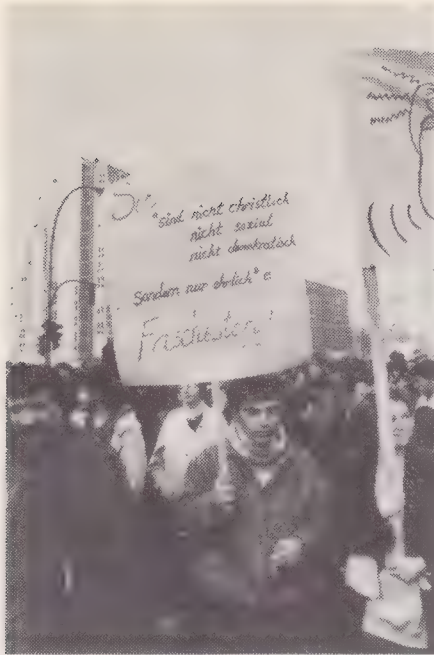 Sie
"sind nicht christlich
nicht sozial
nicht demokratisch
Sondern nur ehrlich" e
Faschisten!